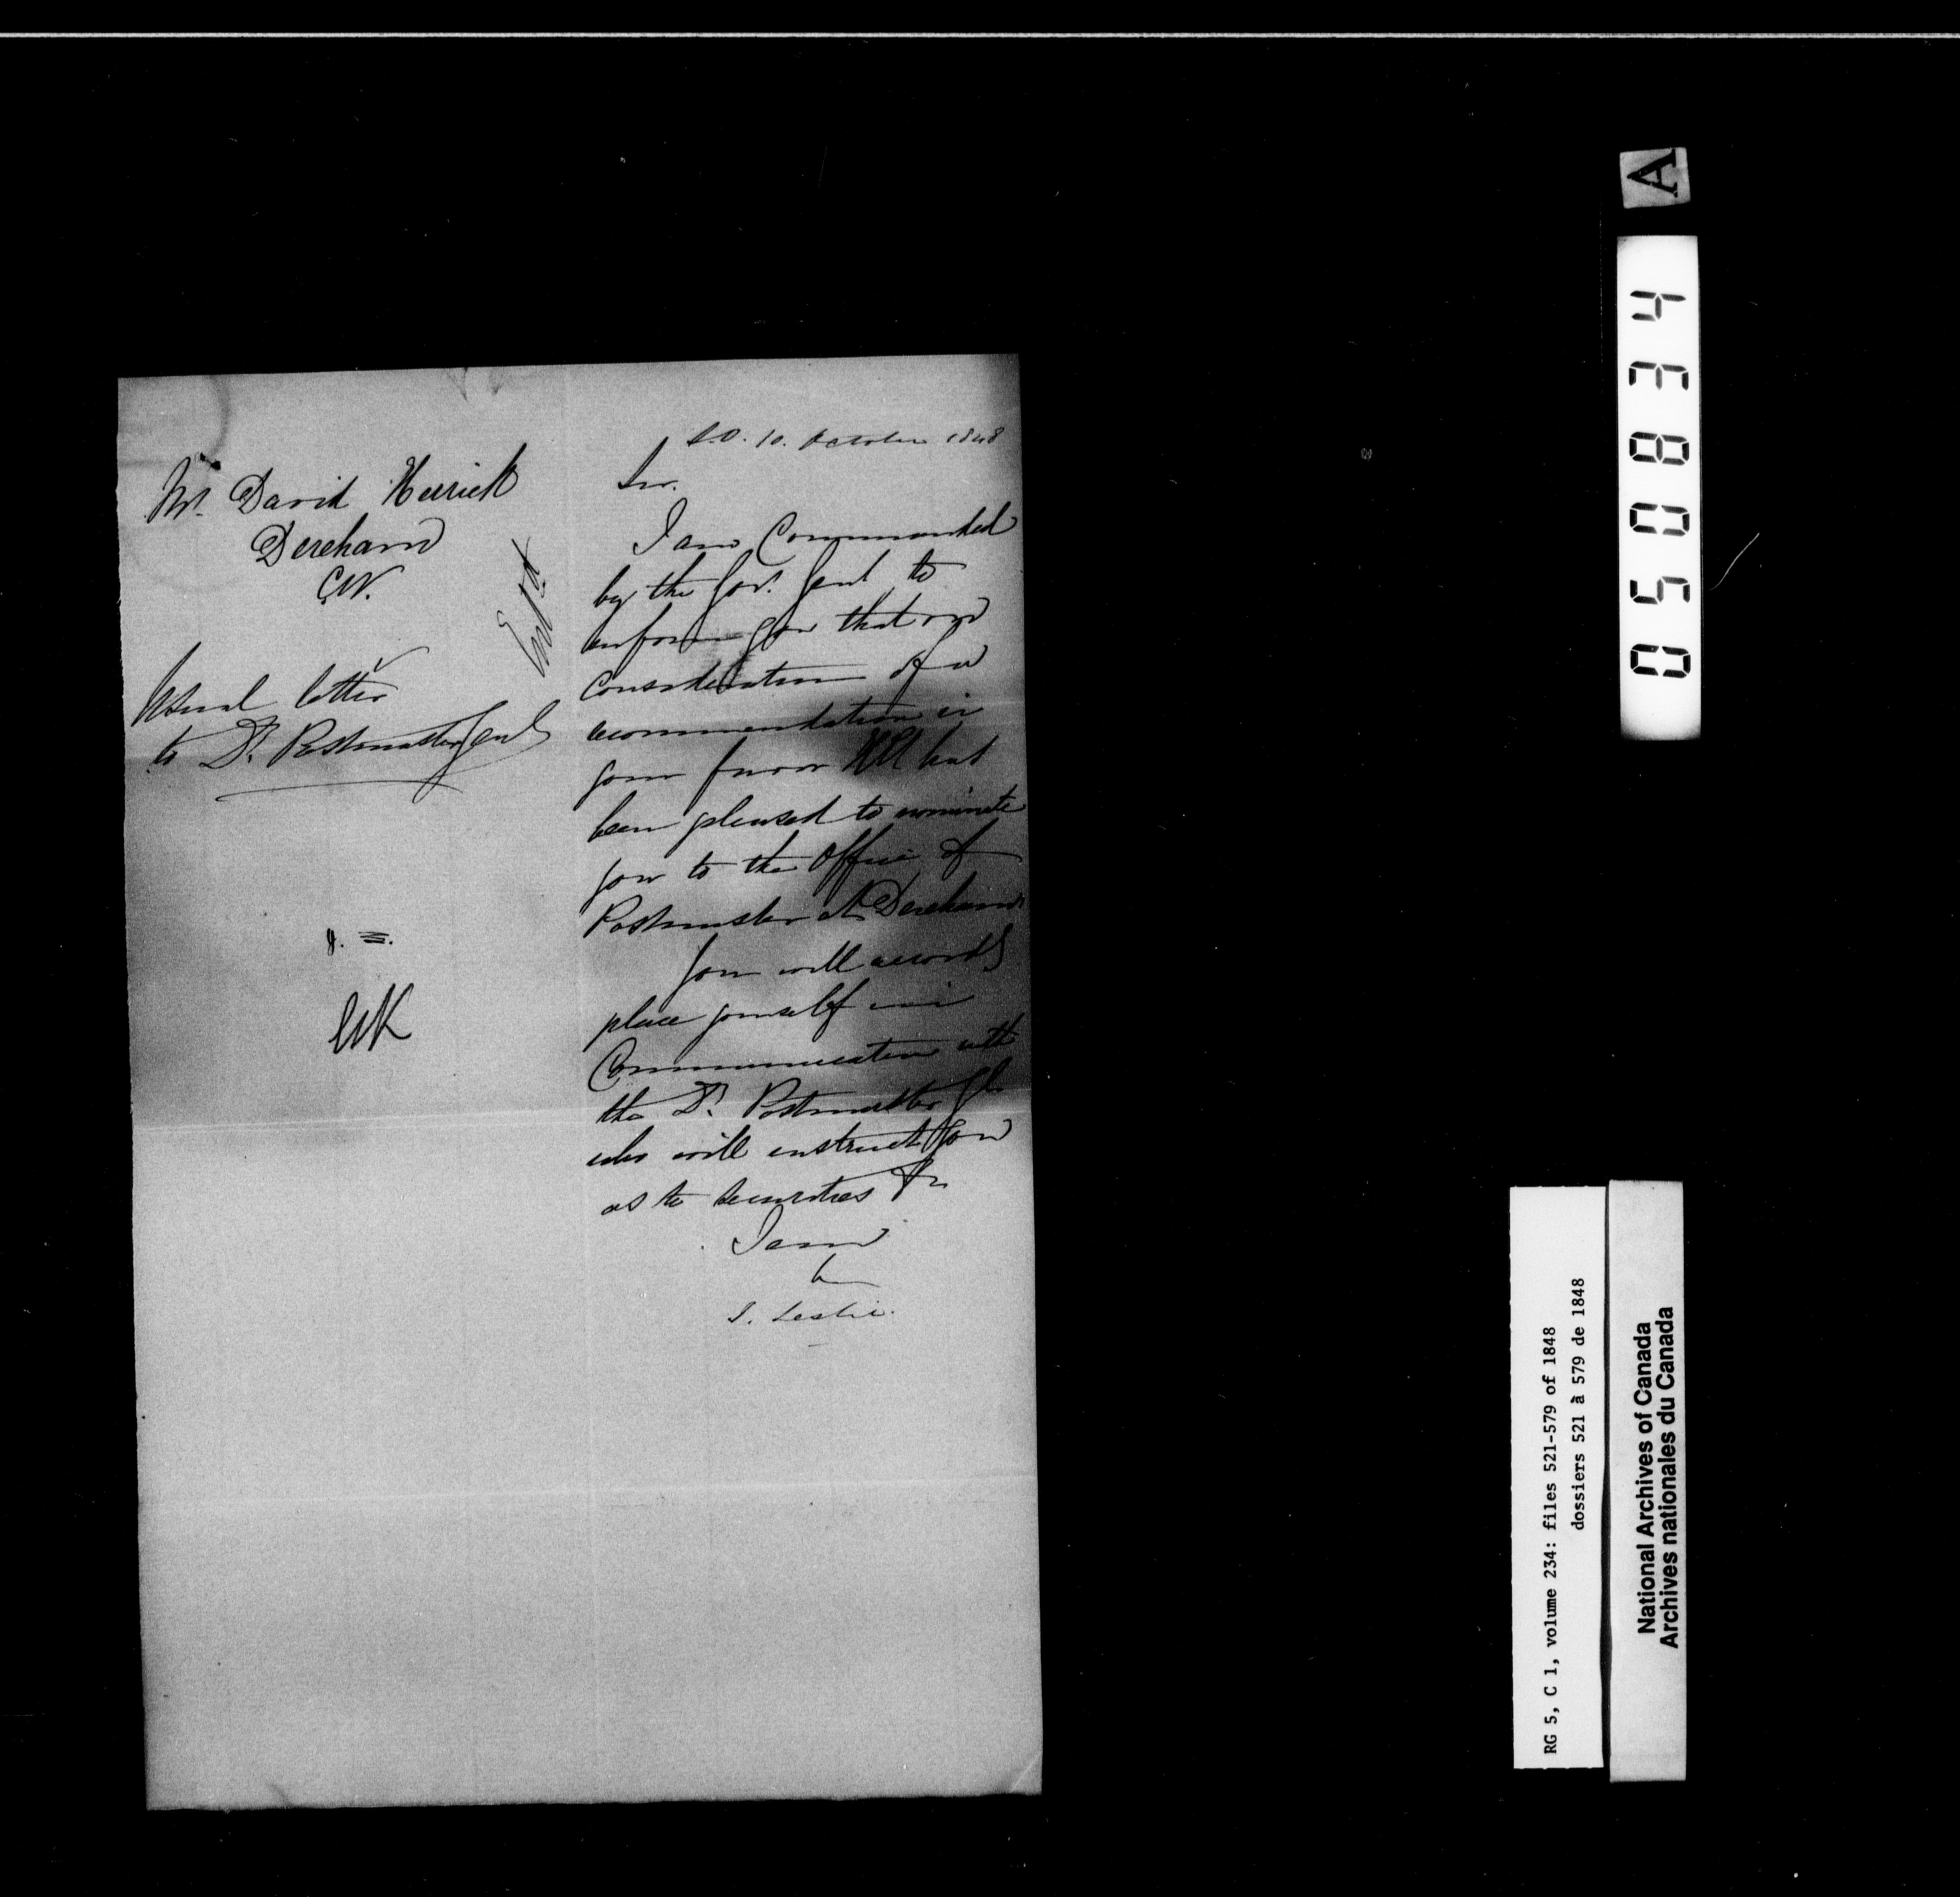 Mr. David Herrick
Dereham
C.W.
Ent.d
Usual letter
to Dy. Postmaster Genl
S.O. 10. October 1848
Sir.
I am Commanded
by the Gov. Genl to
inform you that on
Consideration of a
recommendation in
your favor HE has
been pleased to nominate
you to the Office of
Postmaster at Dereham
You will accordy
place yourself in
Communication with
the Dy. Postmaster Gl.
who will instruct you
as to Securities &c
I am
&c
J. Leslie.
A
050834
RG 5, C 1, volume 234: files 521-579 of 1848
dossiers 521 à 579 de 1848
National Archives of Canada
Archives nationales du Canada